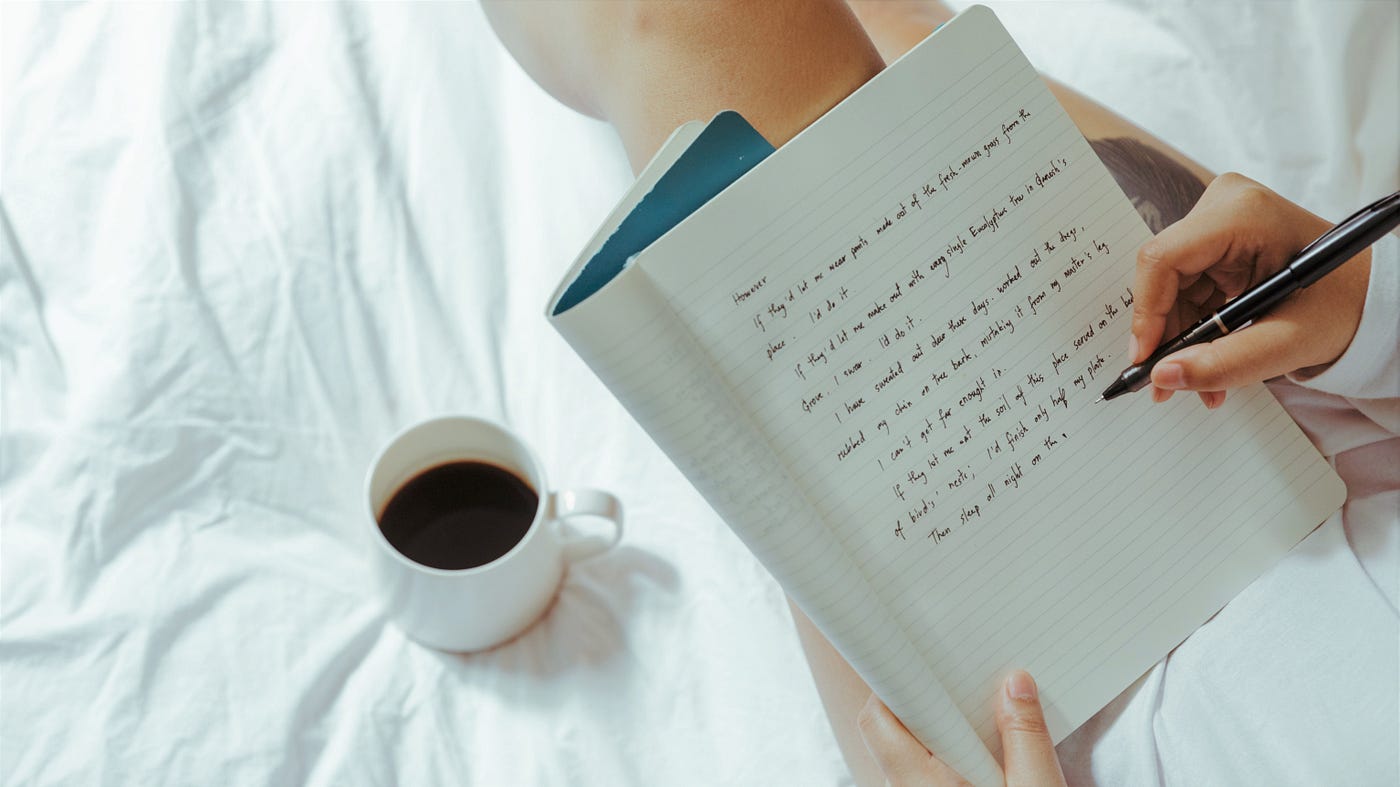 However
If they'd let me wear pants made out of the fresh-mown grass from the
place. I'd do it.
If they'd let me make out with every single Eucalyptus tree in Ganesh's
Grove. I swear. I'd do it.
I have sweated out dew these days. worked out the dregs,
rubbed my chin on tree bark, mistaking it from my master's leg
I can't get far enough in.
If they let me eat the soil of this place served on the bed
of bird's nests; I'd finish only half my plate.
Then sleep all night on the